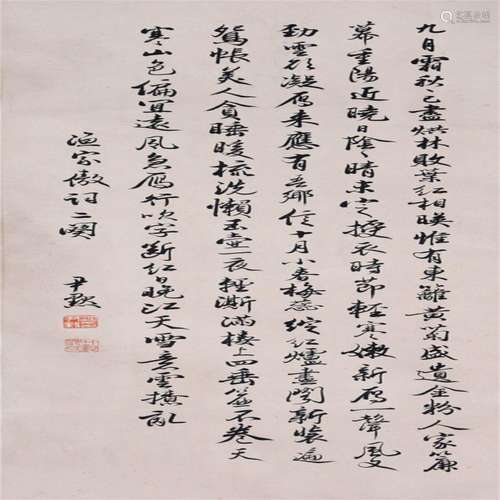 九月霜秋々已盡烘林敗葉紅相映惟有東籬黃菊盛遺金粉人家簾
幕重陽近曉日陰々晴未定授衣時節輕寒嫩新雁一聲風又
勁雲欲凝雁來應有吾鄉信十月小春梅蕊綻紅爐畫閣新裝遍
鴛帳美人貪睡暖梳洗懶玉壺一夜輕澌滿樓上四垂簾不卷天
寒山色偏宜遠風急雁行吹字斷紅日晚江天雪意雲撩亂
漁家傲詞二闋
尹默